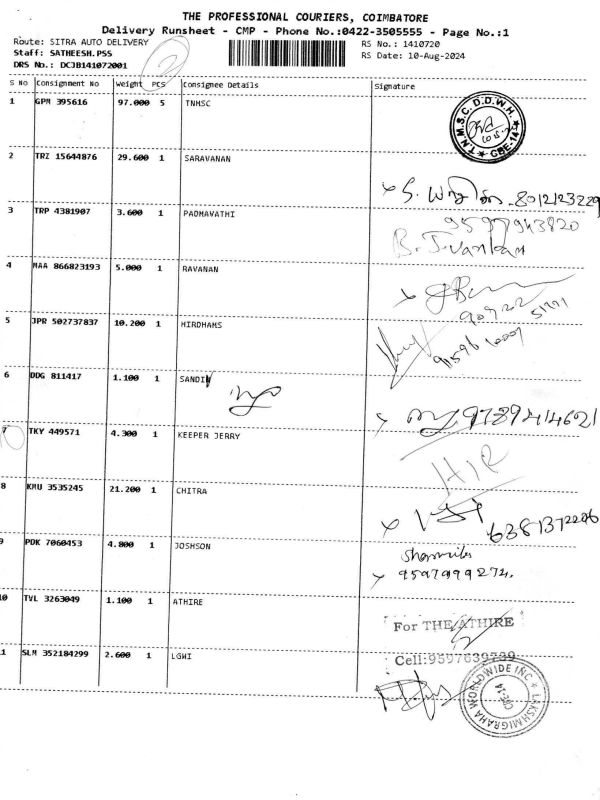 THE PROFESSIONAL COURIERS, COIMBATORE
Delivery Runsheet - CMP - Phone No.:0422-3505555 - Page No.:1
Route: SITRA AUTO DELIVERY RS No.: 1410720
Staff: SATHEESH.PSS RS Date: 10-Aug-2024
DRS No.: DCJB141072001
S No Consignment No Weight PCS Consignee Details Signature
1 GPM 395616 97.000 5 TNHSC
T.N.M.S.C. D.D.W.H. CBE-14
2 TRZ 15644876 29.600 1 SARAVANAN
8012123229
3 TRP 4381907 3.600 1 PADMAVATHI
9597943820
4 MAA 866823193 5.000 1 RAVANAN
5 JPR 502737837 10.200 1 HIRDHAMS
6 DDG 811417 1.100 1 SANDIV
9789414621
7 TKY 449571 4.300 1 KEEPER JERRY
HIR
8 KMU 3535245 21.200 1 CHITRA
6381372206
9 PDK 7060453 4.800 1 JOSHSON
9597999274.
10 TVL 3263049 1.100 1 ATHIRE
For THE ATHIRE
Cell:9597639739
11 SLM 352184299 2.600 1 LGWI
LAKSHMIGRAHA WORLDWIDE INC CBE-14